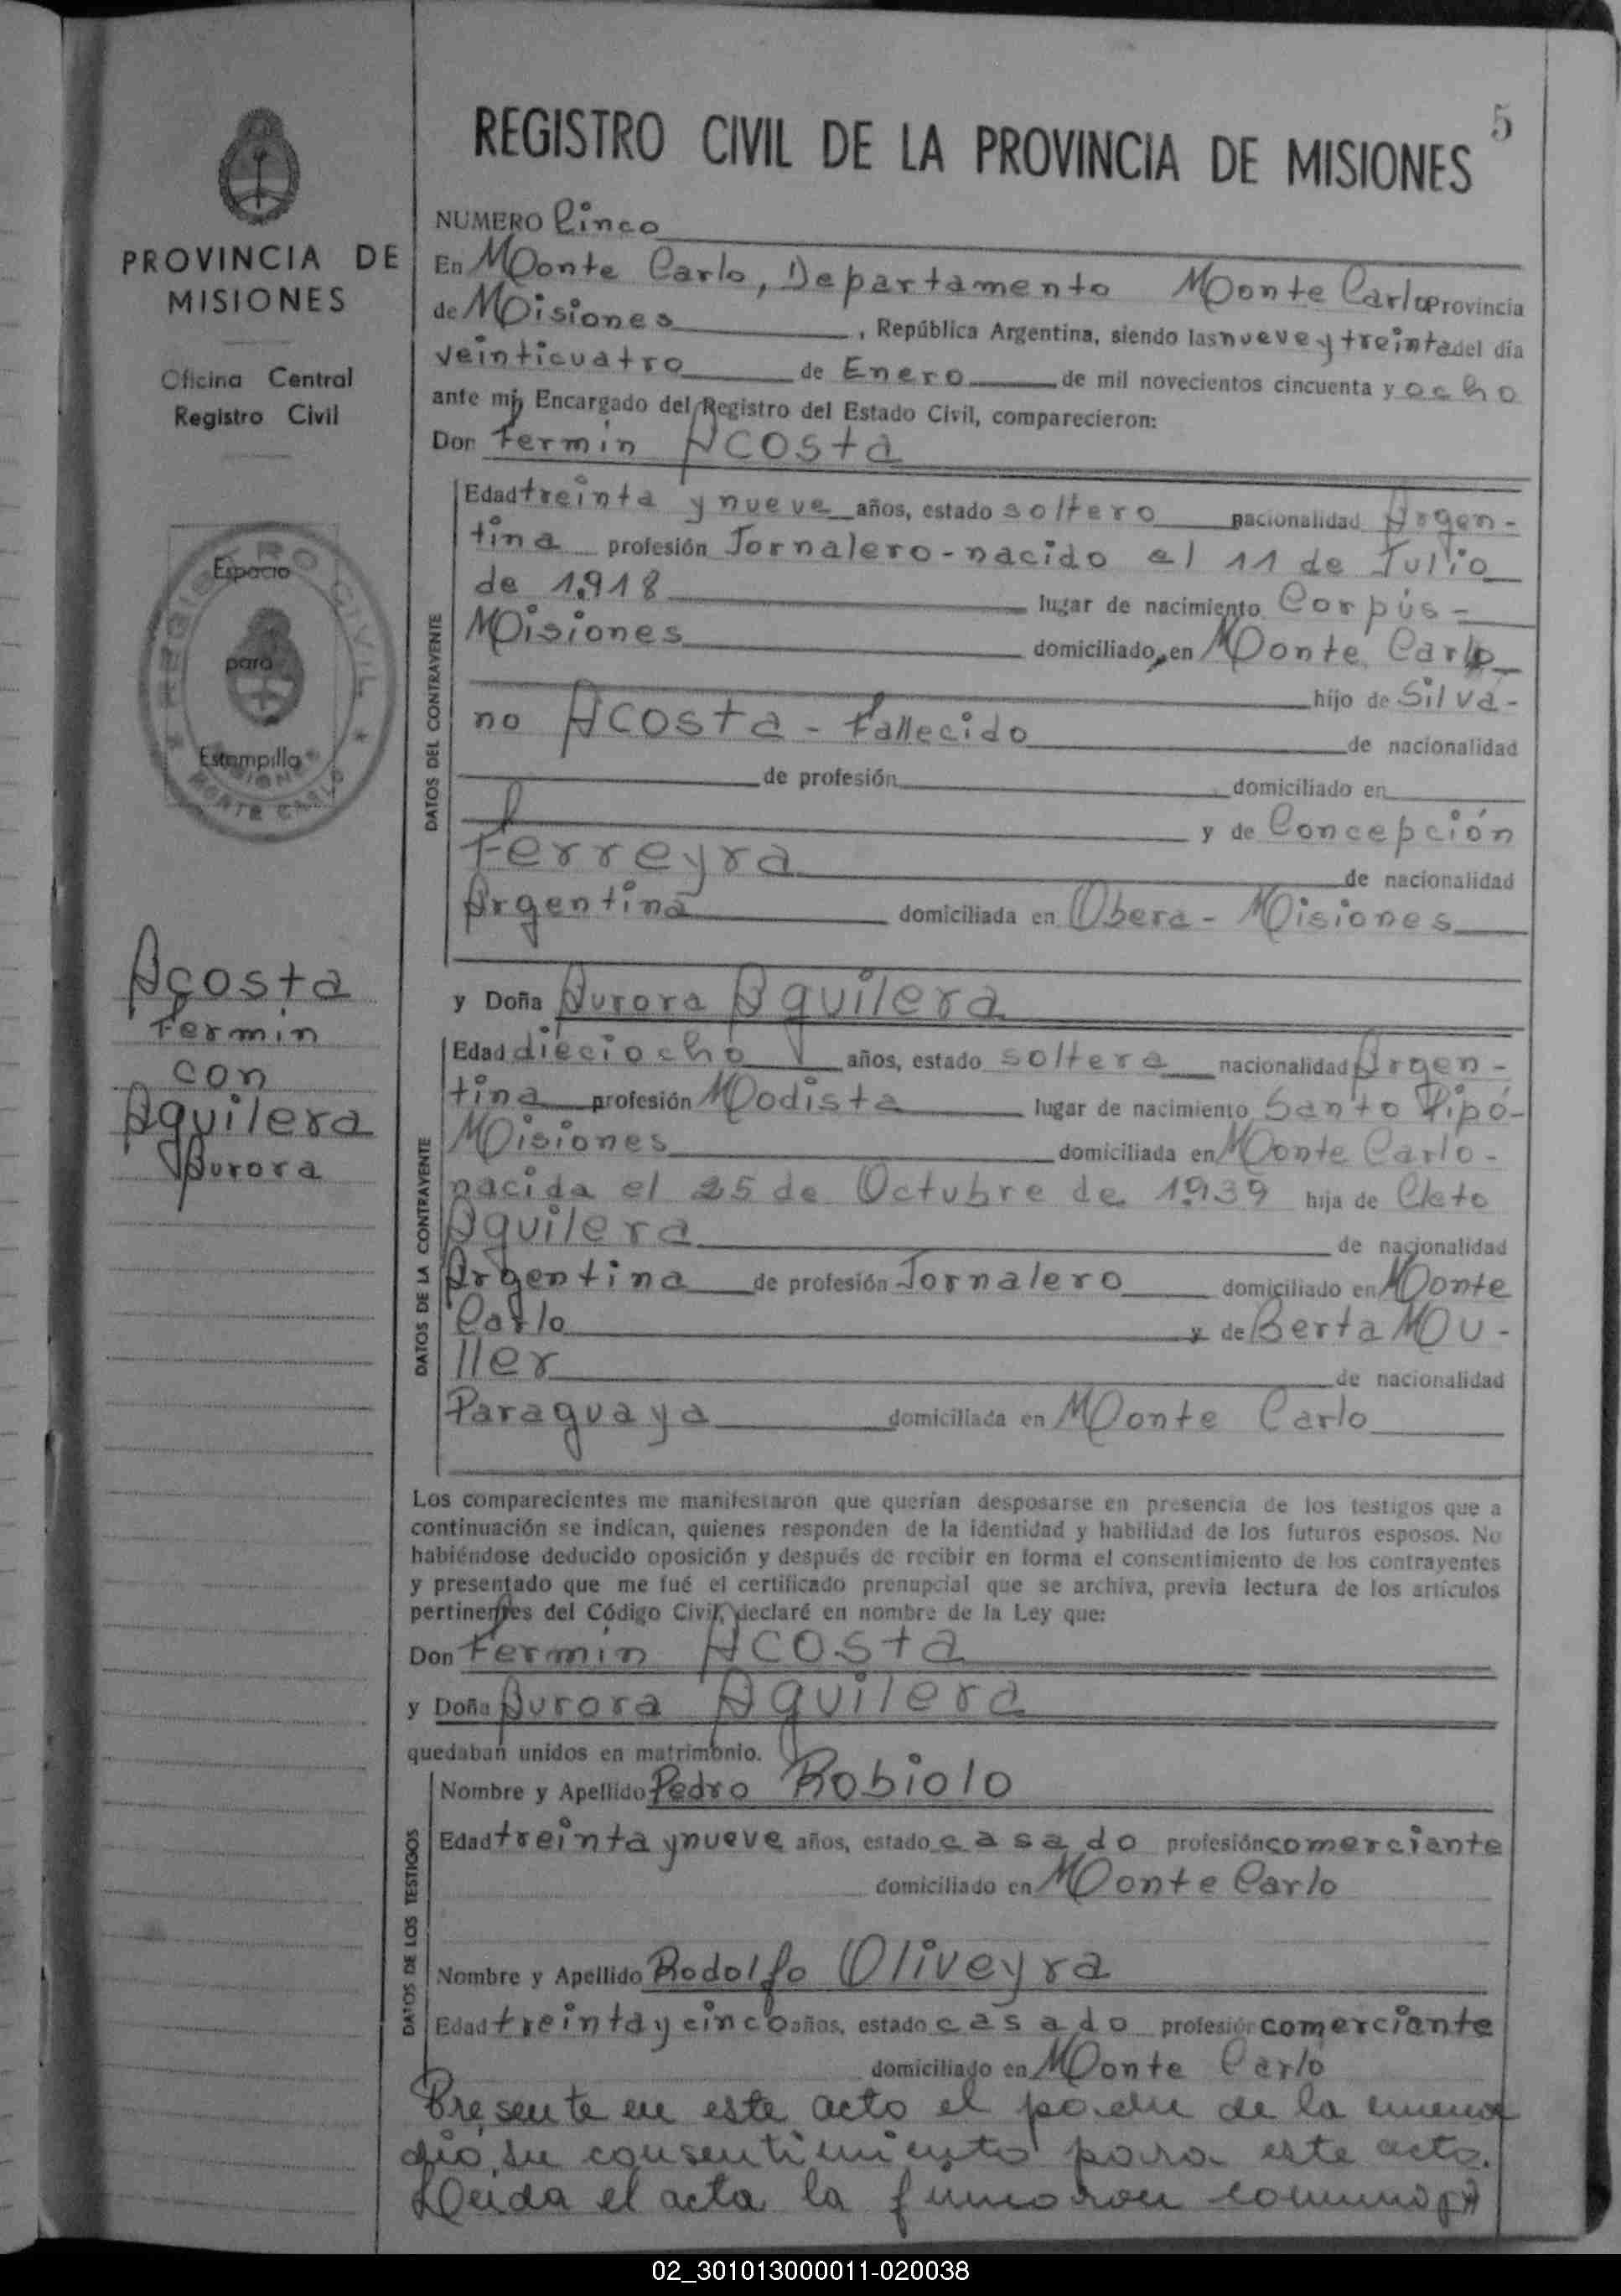 5
REGISTRO CIVIL DE LA PROVINCIA DE MISIONES
PROVINCIA DE
MISIONES
Oficina Central
Registro Civil
Espacio
para
Estampilla
REGISTRO CIVIL
MISIONES
MONTE CARLO
Acosta
Fermin
con
Aguilera
Aurora
NUMERO Cinco
En Monte Carlo, Departamento Monte Carlo Provincia
de Misiones, República Argentina, siendo las nueve y treinta del día
veinticuatro de Enero de mil novecientos cincuenta y ocho
ante mí, Encargado del Registro del Estado Civil, comparecieron:
Don Fermin Acosta
DATOS DEL CONTRAYENTE
Edad treinta y nueve años, estado soltero nacionalidad Argen-
tina profesión Jornalero - nacido el 11 de Julio
de 1.918 lugar de nacimiento Corpús -
Misiones domiciliado en Monte Carlo
hijo de Silva-
no Acosta - Fallecido de nacionalidad
de profesión domiciliado en
y de Concepción
Ferreyra de nacionalidad
Argentina domiciliada en Obera - Misiones
y Doña Aurora Aguilera
DATOS DE LA CONTRAYENTE
Edad dieciocho años, estado soltera nacionalidad Argen-
tina profesión Modista lugar de nacimiento Santo Pipó-
Misiones domiciliada en Monte Carlo -
nacida el 25 de Octubre de 1.939 hija de Cleto
Aguilera de nacionalidad
Argentina de profesión Jornalero domiciliado en Monte
Carlo y de Berta Mu-
ller de nacionalidad
Paraguaya domiciliada en Monte Carlo
Los comparecientes me manifestaron que querían desposarse en presencia de los testigos que a
continuación se indican, quienes responden de la identidad y habilidad de los futuros esposos. No
habiéndose deducido oposición y después de recibir en forma el consentimiento de los contrayentes
y presentado que me fué el certificado prenupcial que se archiva, previa lectura de los artículos
pertinentes del Código Civil, declaré en nombre de la Ley que:
Don Fermin Acosta
y Doña Aurora Aguilera
quedaban unidos en matrimonio.
DATOS DE LOS TESTIGOS
Nombre y Apellido Pedro Robiolo
Edad treinta y nueve años, estado casado profesión comerciante
domiciliado en Monte Carlo
Nombre y Apellido Rodolfo Oliveyra
Edad treinta y cinco años, estado casado profesión comerciante
domiciliado en Monte Carlo
Presente en este acto el padre de la menor
dió su consentimiento para este acto.
Leida el acta la firmaron conmigo
02_301013000011-020038